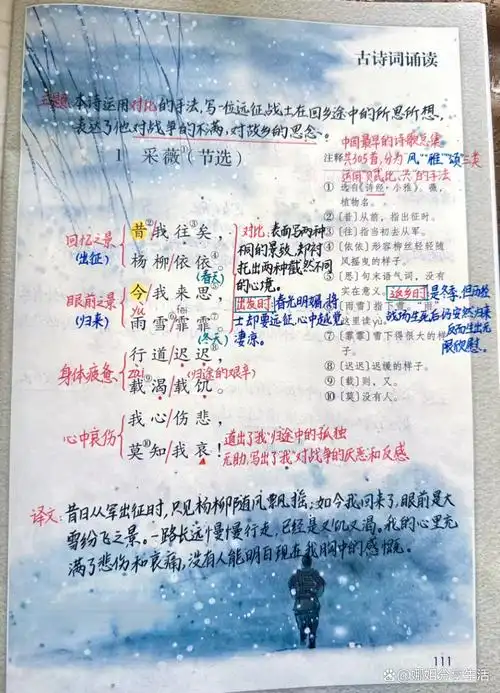 古诗词诵读
主题:本诗运用对比的手法,写一位远征战士在回乡途中的所思所想,
表达了他对战争的不满,对故乡的思念。
1 采薇①(节选)
中国最早的诗歌总集
共305首,分为"风""雅""颂"三类
运用"赋、比、兴"的手法
注释
① 选自《诗经·小雅》。薇,
植物名。
② [昔]从前,指出征时。
③ [往]指当初去从军。
④ [依依]形容柳丝轻轻随
风摇曳的样子。
⑤ [思]句末语气词,没有
实在意义。
⑥ [雨雪]指下雪。"雨"
这里读yù。
⑦ [霏霏]雪下得很大的样
子。
⑧ [迟迟]迟缓的样子。
⑨ [载]则,又。
⑩ [莫]没有人。
回忆之景
(出征)
昔②/我往③矣,
杨柳/依依④。
(春天)
眼前之景
(归来)
今/我来思⑤,
yù
fēi
雨雪⑥/霏霏⑦。
(冬天)
对比:表面写两种
不同的景致,却衬
托出两种截然不同
的心境。
出发时:春光明媚,将
士却要远征,心中越觉
凄凉。
返乡时:是冬季,但历经
战场生死后仍安然归来
反而生出无
限欣慰。
身体疲惫
行道/迟迟⑧,
zài
载⑨渴/载饥。
(归途中的艰辛)
心中哀伤
我心/伤悲,
莫⑩知/我哀!
道出了"我"归途中的孤独
无助,写出了"我"对战争的厌恶和反感
译文:昔日从军出征时,只见杨柳随风飘摇;如今我回来了,眼前是大
雪纷飞之景。一路长远慢慢行走,已经是又饥又渴。我的心里充
满了悲伤和哀痛,没有人能明白现在我胸中的感慨。
111
@娜姐分享生活